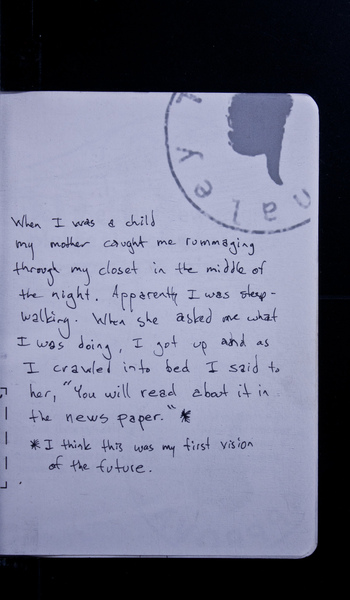 When I was a child
my mother caught me rummaging
through my closet in the middle of
the night. Apparently I was sleep-
walking. When she asked me what
I was doing, I got up and as
I crawled into bed I said to
her, "You will read about it in
the news paper." *
* I think this was my first vision
of the future.